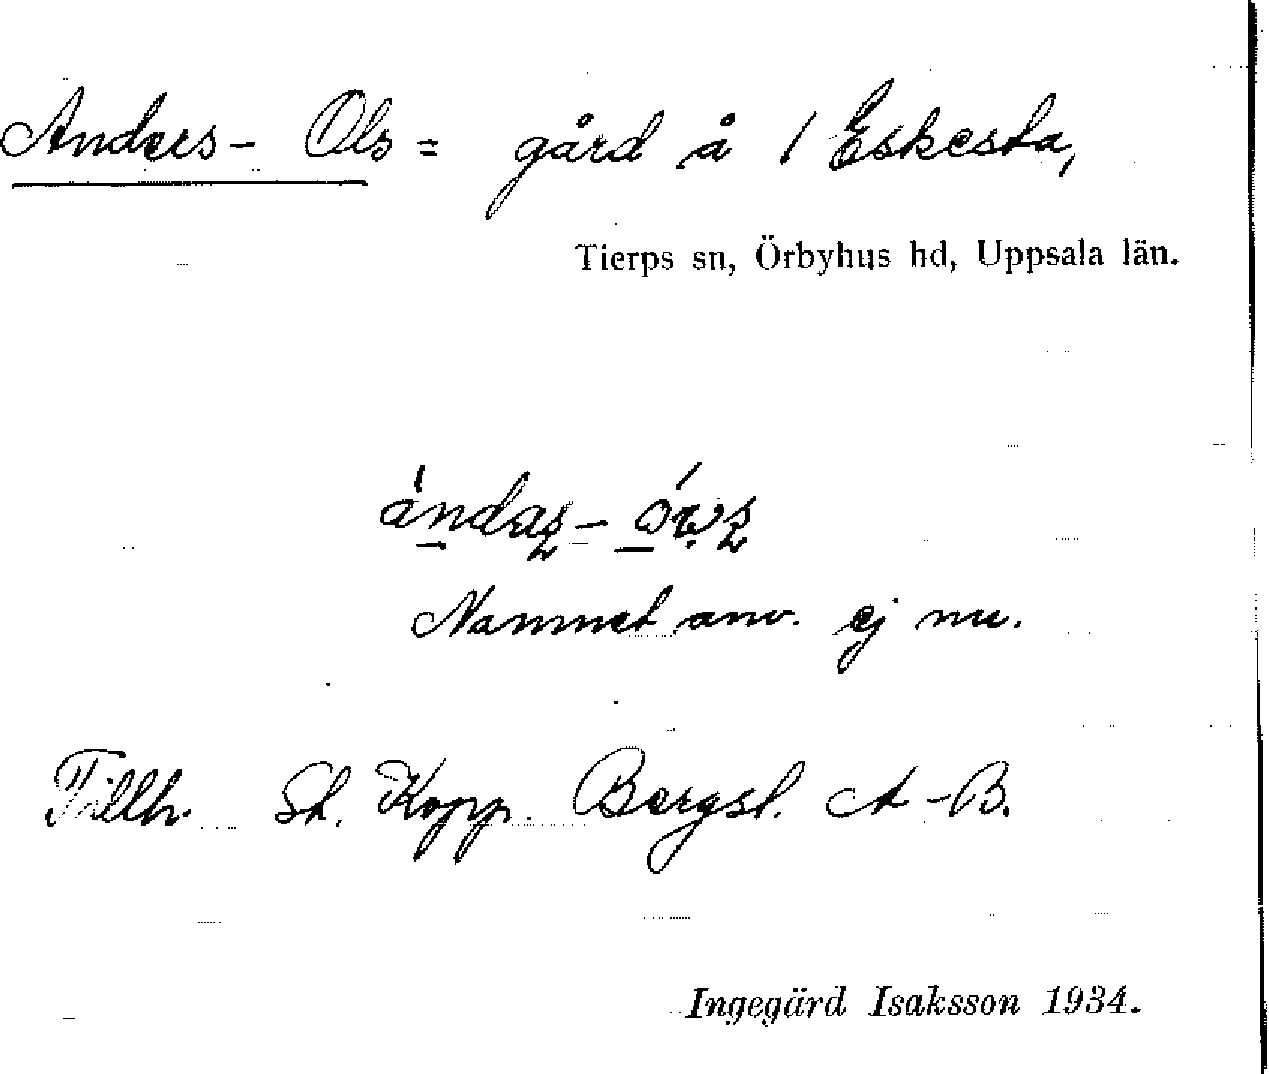 Anders-Ols= gård å 1 Eskesta,
Tierps sn, Örbyhus hd, Uppsala län.
Namnet anv. ej nu.
Tillh. St. Kopp. Bergsl. A-B.
Ingegärd Isaksson 1934.